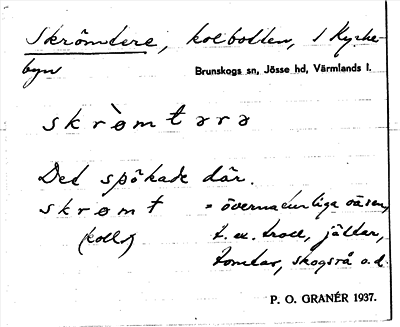 Skrömtere, kolbotten, i Kyrke-
byn
Brunskogs sn, Jösse hd, Värmlands l.
skrømtərə
Det spökade där.
skrømt = övernaturliga väsen,
(koll) t. ex. troll, jättar,
tomtar, skogsrå o.d.
P. O. GRANÉR 1937.